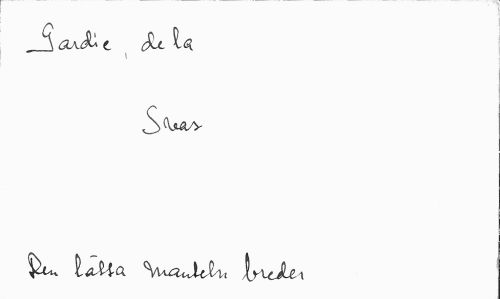 Gardie, de la
Svas
Den lätta manteln breder